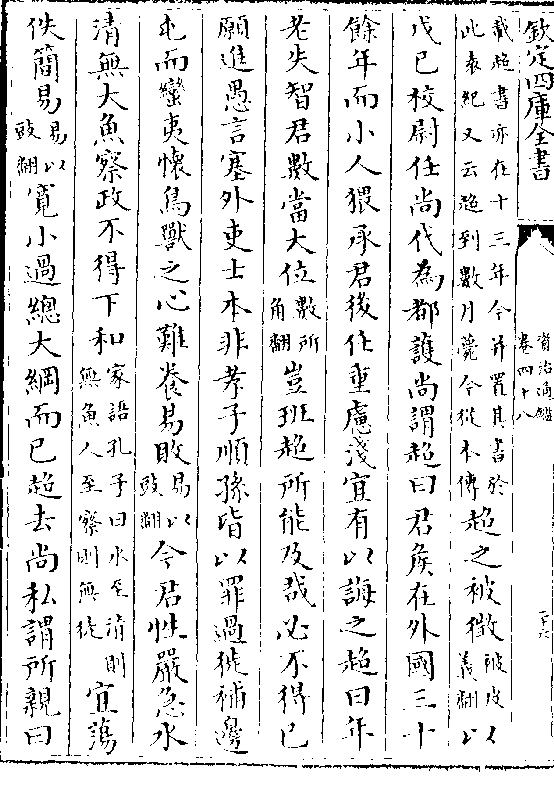 欽定四庫全書
資治通鑑
卷四十八
載超書亦在十三年今并置其書於
此袁紀又云超到數月薨今從本傳超之被徵被皮義翻以
戊己校尉任尚代為都護尚謂超曰君侯在外國三十
餘年而小人猥承君後任重慮淺宜有以誨之超曰年
老失智君數當大位數所角翻豈班超所能及哉必不得已
願進愚言塞外吏士本非孝子順孫皆以罪過徙補邊
屯而蠻夷懷鳥獸之心難養易敗易以豉翻今君性嚴急水
清無大魚察政不得下和家語孔子曰水至清則無魚人至察則無徒宜蕩
佚簡易易以豉翻寛小過總大綱而已超去尚私謂所親曰